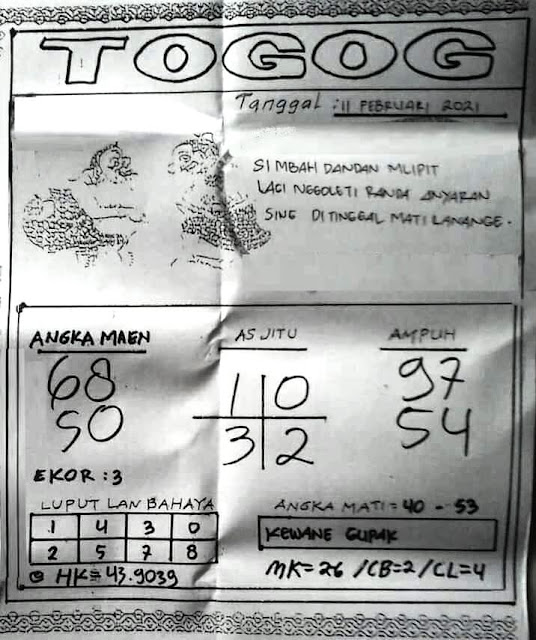 TOGOG
Tanggal : 11 FEBRUARI 2021
SI MBAH DANDAN MLIPIT
LAGI NGGOLETI RANDA ANYARAN
SING DITINGGAL MATI LANANGE.
ANGKA MAEN
68
50
EKOR : 3
AS JITU
1 0
3 2
AMPUH
97
54
LUPUT LAN BAHAYA
1 4 3 0
2 5 7 8
HK= 43.9039
ANGKA MATI = 40 - 53
KEWANE GUPAK
MK= 26 / CB=2 / CL=4